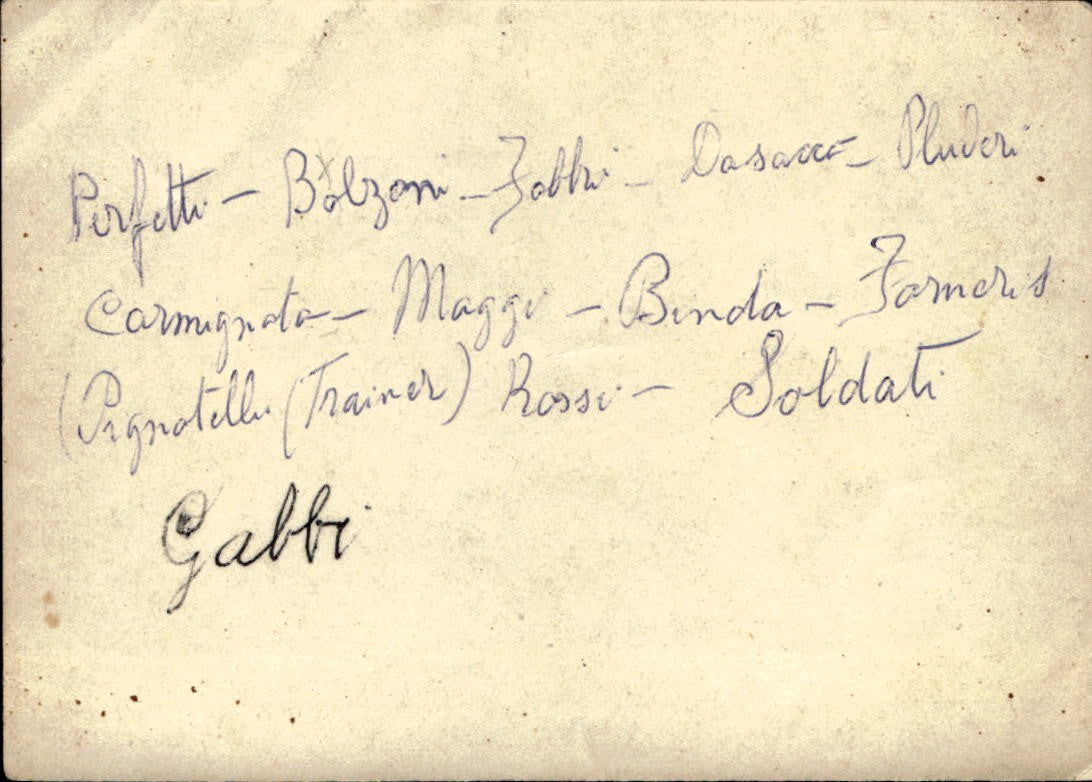 Perfetti - Bolzoni - Fabbri - Dasacco - Pluderi
Carmignato - Maggi - Binda - Farneris
(Pignatelli (Trainer) Rossi - Soldati
Gabbi